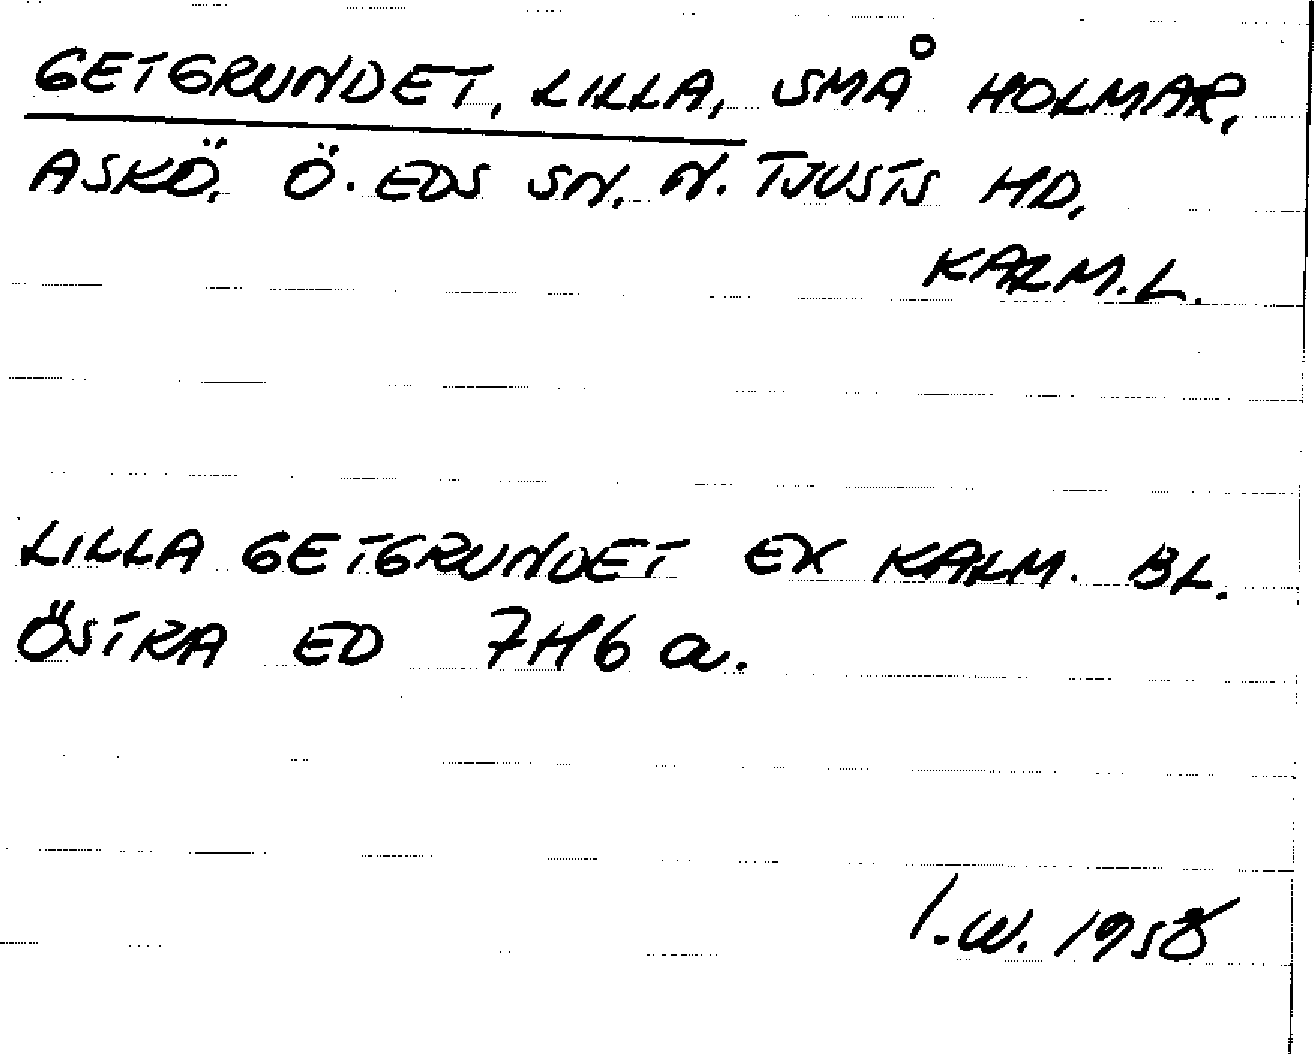 GETGRUNDET, LILLA, SMÅ HOLMAR,
ASKÖ, Ö. EDS SN, N. TJUSTS HD,
KALM. L.
LILLA GETGRUNDET EK KALM. BL.
ÖSTRA ED 7H6a.
I.W. 1958